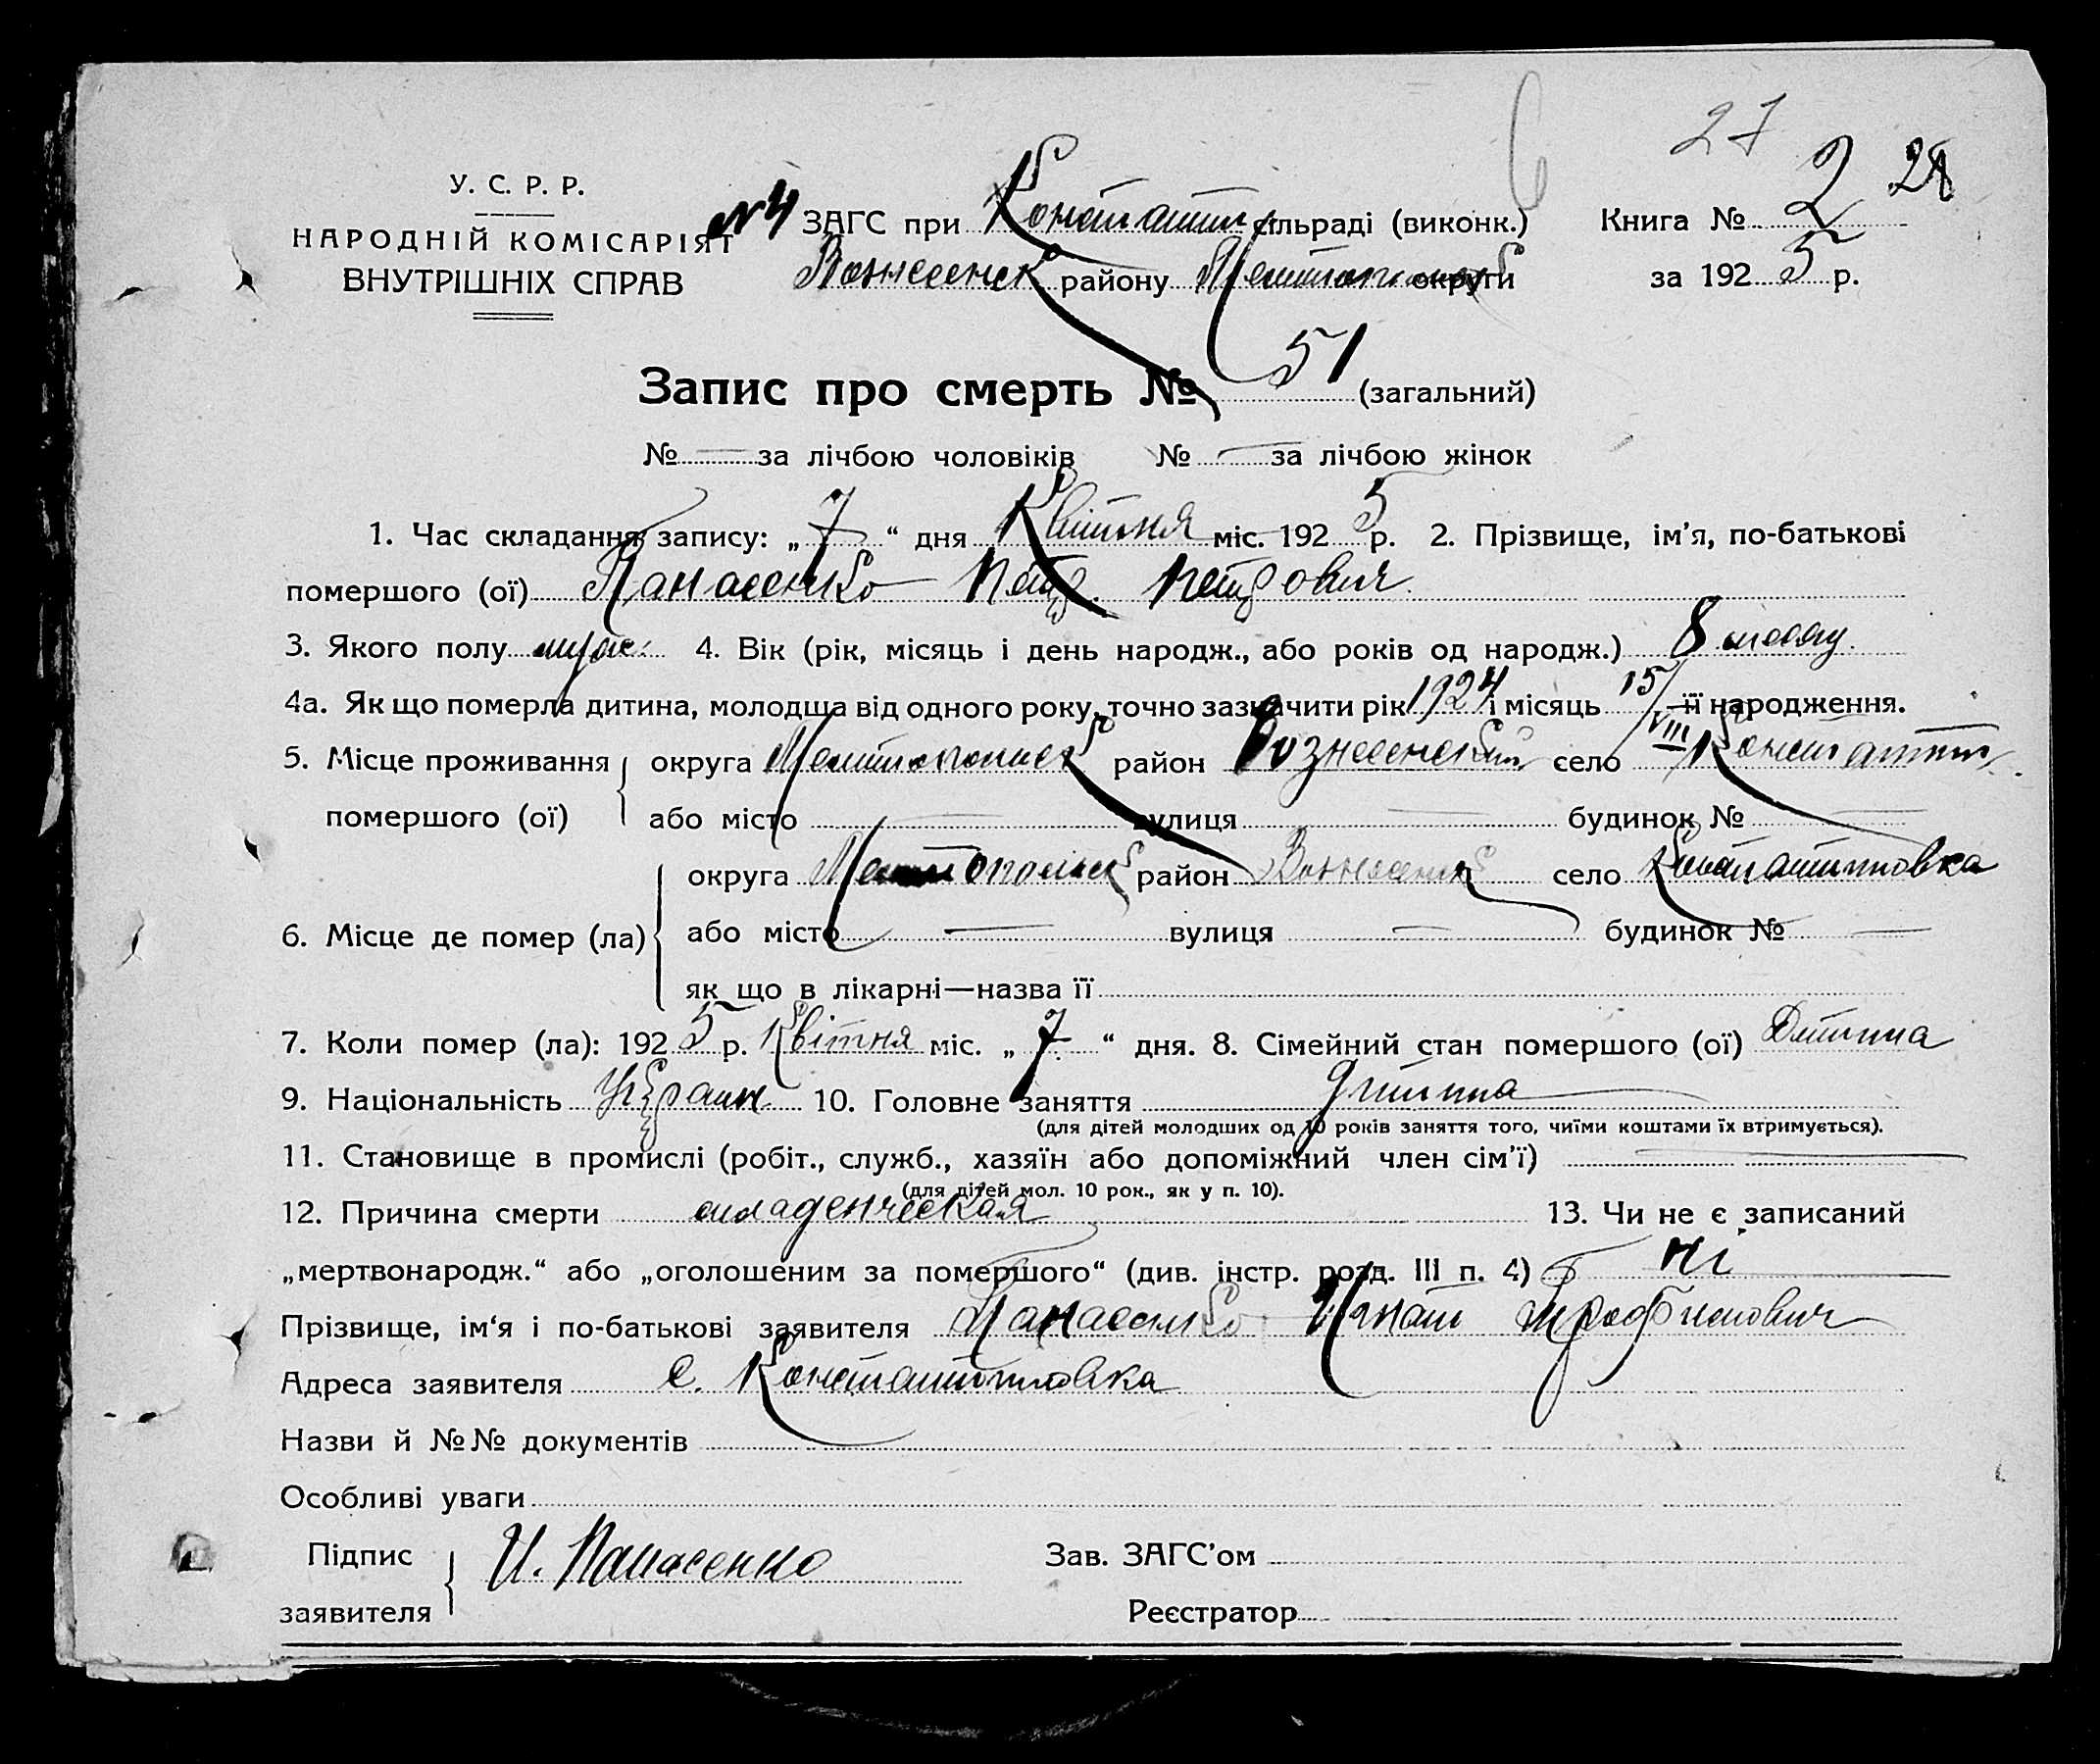 6 27
У. С. Р. Р. 2 28
НАРОДНІЙ КОМІСАРІЯТ №4 ЗАГС при Константин сільраді (виконк.) Книга № 2
ВНУТРІШНІХ СПРАВ Вознесенск району Мелитопольск округи за 1925 р.
Запис про смерть № 51 (загальний)
№ — за лічбою чоловіків № — за лічбою жінок
1. Час складання запису: „7“ дня Квітня міс. 1925 р. 2. Прізвище, ім'я, по-батькові
помершого (ої) Панасенко Петр. Петрович.
3. Якого полу муж: 4. Вік (рік, місяць і день народж., або років од народж.) 8 месяц.
4а. Як що померла дитина, молодща від одного року, точно зазначити рік 1924 і місяць 15/VIII її народження.
5. Місце проживання округа Мелитопольск район Вознесенский село Константин.
помершого (ої) або місто — вулиця — будинок № —
округа Мелитопольск район Вознесенск село Константиновка
6. Місце де помер (ла) або місто — вулиця — будинок № —
як що в лікарні—назва її
7. Коли помер (ла): 1925 р. Квітня міс. „7.“ дня. 8. Сімейний стан помершого (ої) Дитина
9. Національність Украин. 10. Головне заняття дитина
(для дітей молодших од 10 років заняття того, чиїми коштами їх втримується).
11. Становище в промислі (робіт., служб., хазяїн або допоміжний член сім'ї) —
(для дітей мол. 10 рок., як у п. 10).
12. Причина смерти младенческая 13. Чи не є записаний
„мертвонародж.“ або „оголошеним за помершого“ (див. інстр. розд. III п. 4) ні
Прізвище, ім'я і по-батькові заявителя Панасенко Игнат Трофимович
Адреса заявителя с. Константиновка
Назви й №№ документів
Особливі уваги
Підпис И. Панасенко Зав. ЗАГС'ом
заявителя Реєстратор